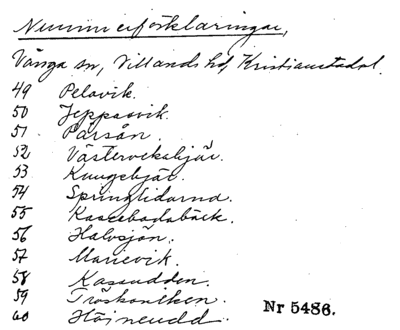 Nummerförklaringar,
Vånga sn, Villands hd, Kristianstads l.
49 Pelavik.
50 Jeppasvik.
51 Parsån.
52 Västervikabjär.
53 Kungebjär.
54 Springlidarna.
55 bäck.
56 Halvsjön.
57 Marievik.
58 Kasaudden.
59
60 Höjneudd.
Nr 5486.